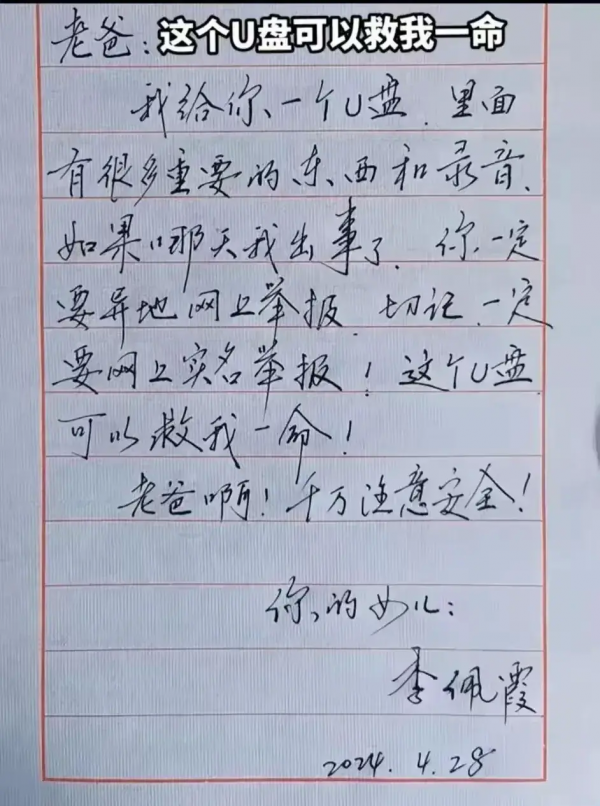 老爸：这个U盘可以救我一命
我给你一个U盘，里面
有很多重要的东西和录音，
如果哪天我出事了，你一定
要异地网上举报，切记，一定
要网上实名举报！这个U盘
可以救我一命！
老爸啊！千万注意安全！
你的女儿：
李佩霞
2024.4.28